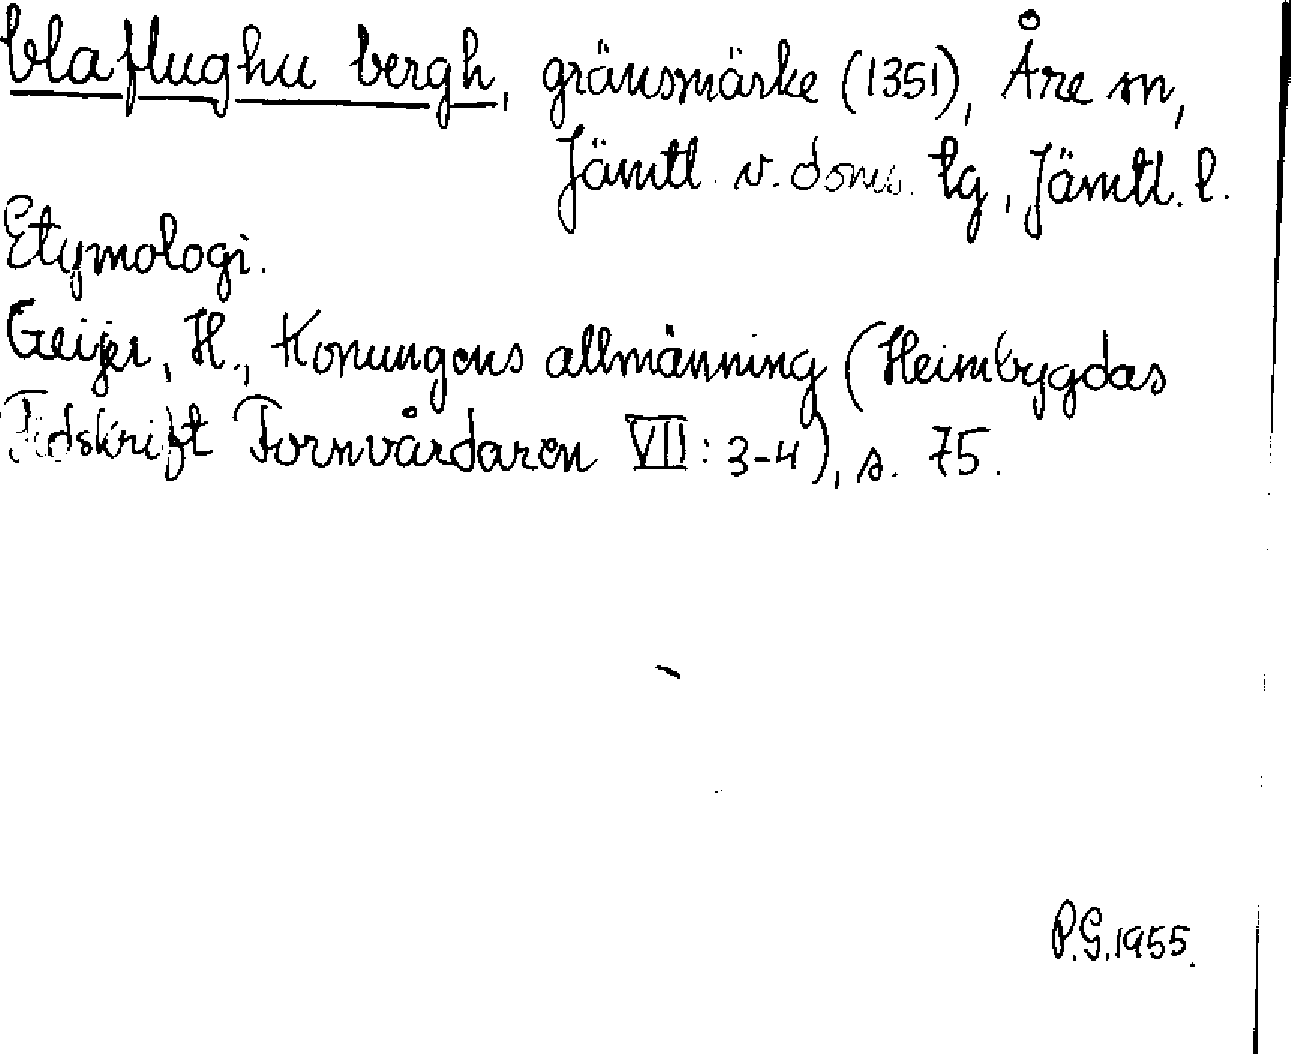 blaflughu bergh, gränsmärke (1351), Åre sn,
Jämtl. v. doms. tg, Jämtl. l.
Etymologi.
Geijer, H., Konungens allmänning (Heimbygdas
Tidskrift Fornvårdaren VII: 3-4), s. 75.
P.G. 1955.